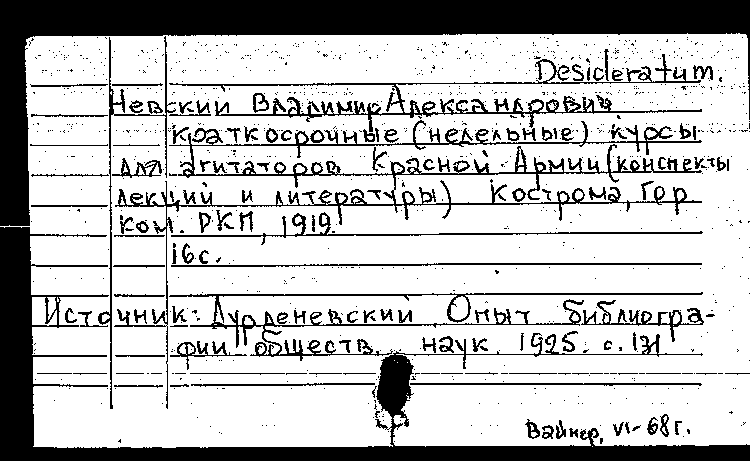 Desideratum.
Невский Владимир Александрович
Краткосрочные (недельные) курсы
для агитаторов Красной Армии (конспекты
лекций и литературы) Кострома, Гор
ком. РКП, 1919.
16с.
Источник: Дурденевский. Опыт библиогра-
фии обществ. наук. 1925. с. 131
Вайнер, VI-68г.